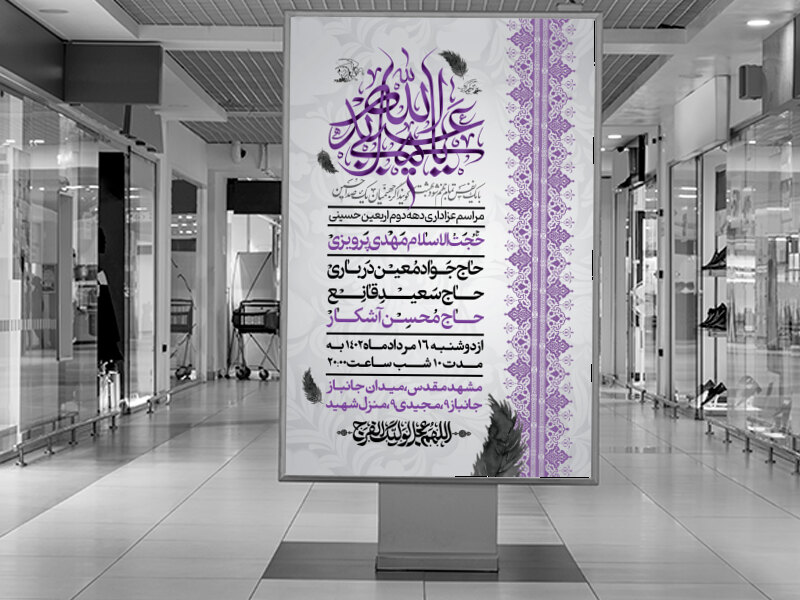 یا اباعبدالله
مراسم عزاداری دهه دوم اربعین حسینی
حجت الاسلام مهدی پرویزی
حاج جواد معین درباری
حاج سعید قانع
حاج محسن آشکار
از دوشنبه ۱۶ مرداد ماه ۱۴۰۲ به
مدت ۱۰ شب ساعت ۲۰:۰۰
مشهد مقدس، میدان جانباز
جانباز ۹، مجیدی ۹، منزل شهید
اللهم عجل لولیک الفرج